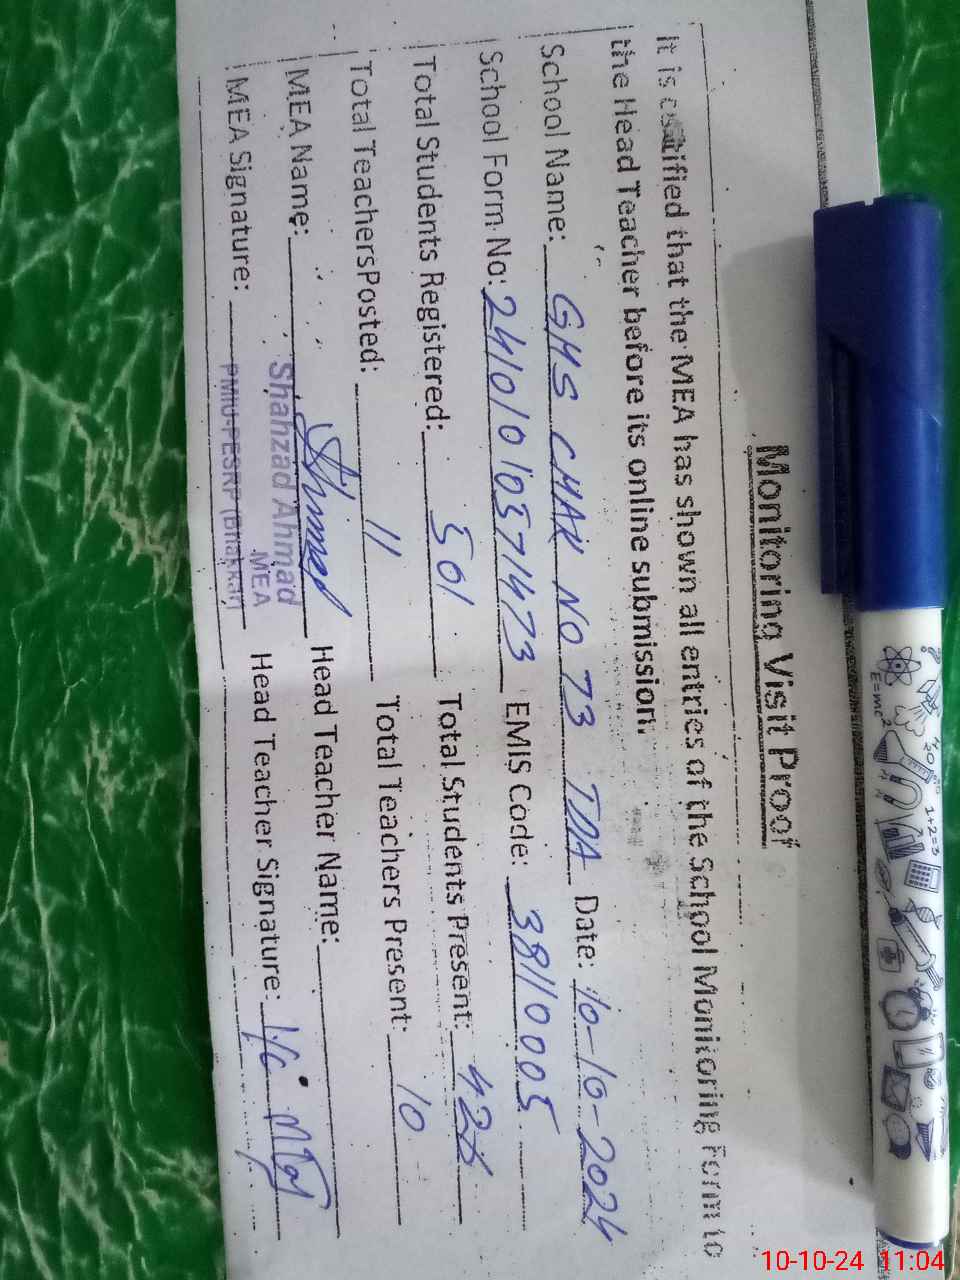 Monitoring Visit Proof
It is certified that the MEA has shown all entries of the School Monitoring Form to
the Head Teacher before its online submission.
School Name: GHS CHAK NO 73 TDA Date: 10-10-2024
School Form No: 24101010371473 EMIS Code: 38110005
Total Students Registered: 501 Total Students Present: 428
Total Teachers Posted: 11 Total Teachers Present: 10
MEA Name: Ahmad Head Teacher Name:
Shahzad Ahmad
MEA
MEA Signature: PMIU-PESRP (Bhakkar) Head Teacher Signature: I/C
E=mc²
1+2=3
10-10-24 11:04